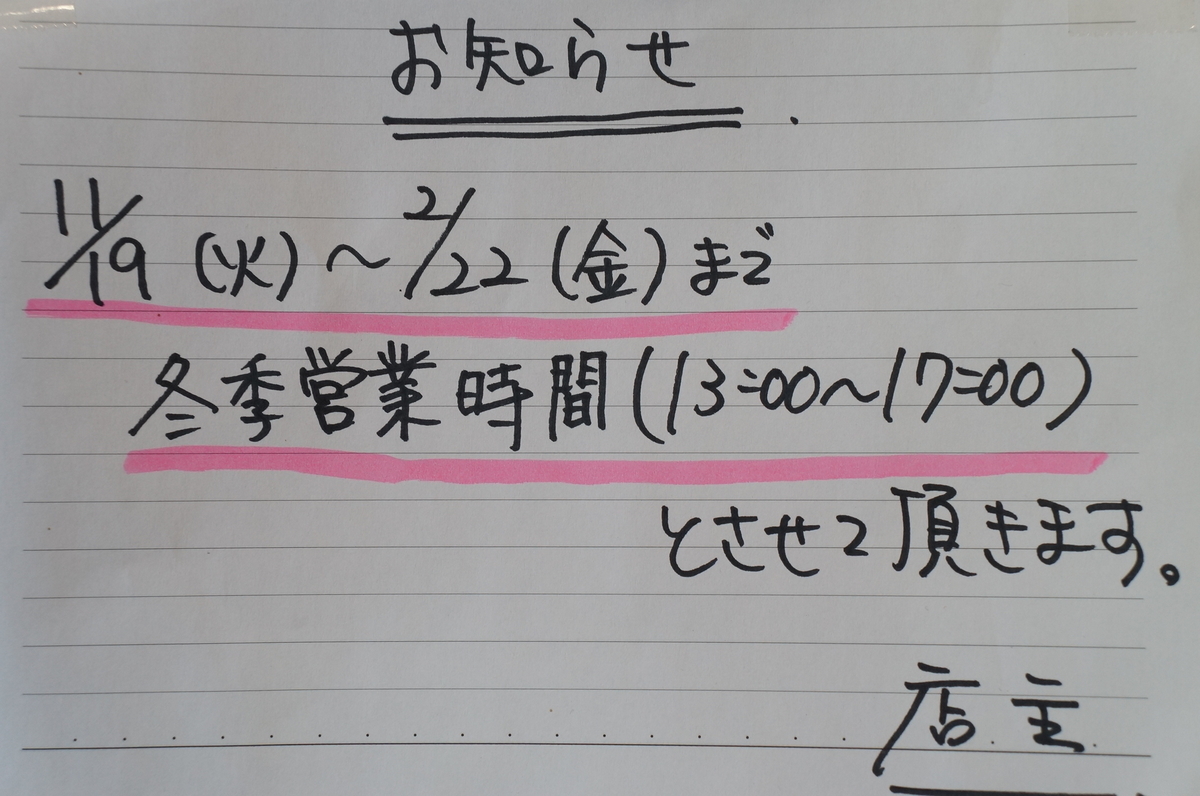 お知らせ
11/19(火)〜2/22(金)まで
冬季営業時間(13:00〜17:00)
とさせて頂きます。
店主